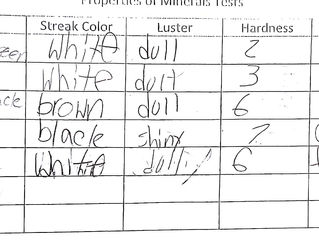 Properties of Minerals Tests
Streak Color Luster Hardness
White dull 2
White dull 3
brown doll 6
black shiny 7
White dull 6